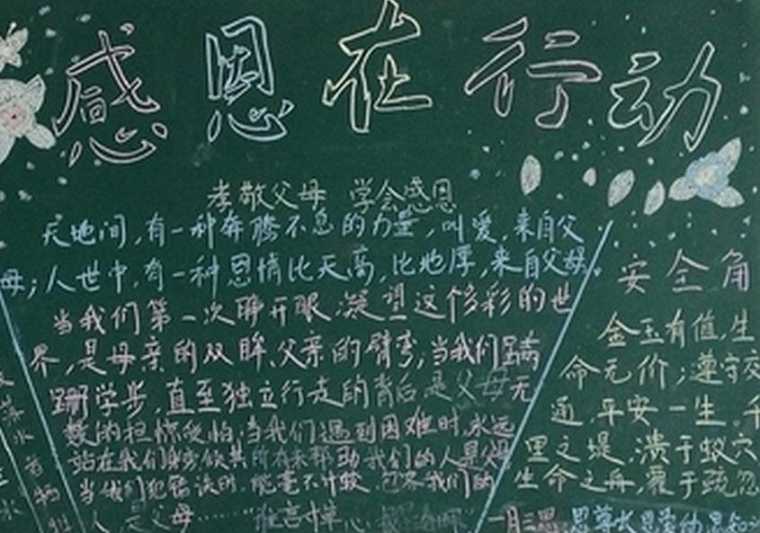 感恩在行动
孝敬父母 学会感恩
天地间,有一种奔腾不息的力量,叫爱,来自父
母;人世中,有一种恩情比天高,比地厚,来自父母。
当我们第一次睁开眼,凝望这个多彩的世
界,是母亲的双眸、父亲的臂弯;当我们蹒
跚学步,直至独立行走的背后是父母无
数的担惊受怕;当我们遇到困难时,永远
站在我们身旁倾其所有来帮助我们的人是父母
当我们犯错误时,能毫不计较
我们的
人是父母……
安全角
金玉有值,生
命无价;遵守交
通,平安一生。千
里之堤,溃于蚁穴
生命之舟,覆于疏忽